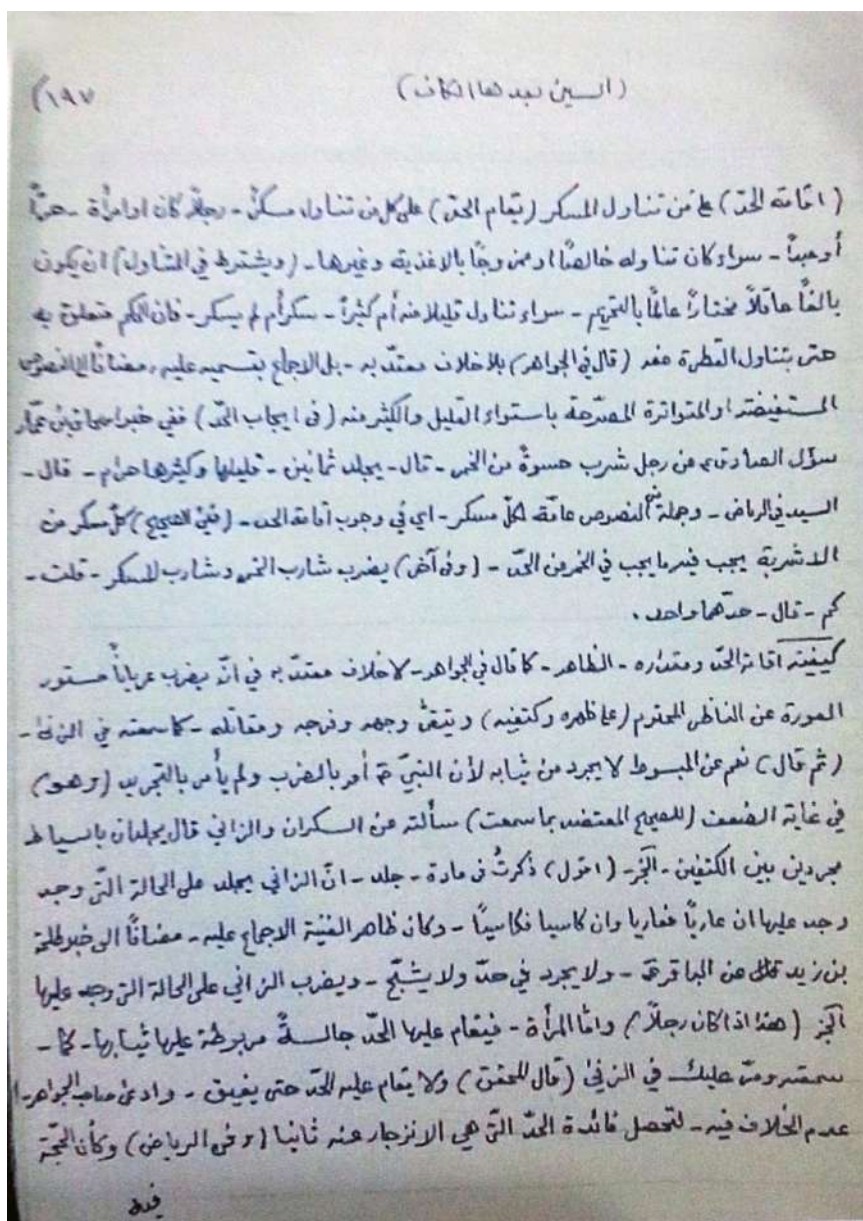 (السين بعدها الكاف) (١٩٧
(اقامة الحدّ) على من تناول المسكر (يقام الحدّ) على كل من تناول مسكرٌ - رجلاً كان او امرأة - حرّاً
أو عبداً - سواء كان تناوله خالصًا او ممزوجًا بالاغذية وغيرها - (ويشترط في المتناول) ان يكون
بالغًا عاقلاً مختارًا عالمًا بالتحريم - سواء تناول قليلا منه أم كثيراً - سكر أم لم يسكر - فان الحكم متعلق به
حتى بتناول القطرة منه (قال في الجواهر) بلا خلاف معتدّ به - بل الاجماع بقسميه عليه، مضافًا الى النصوص
المستفيضة او المتواترة المصرّحة باستواء القليل والكثير منه (في ايجاب الحدّ) ففي خبر اسحاق بن عمّار
سؤل الصادق ع من رجل شرب حسوةً من الخمر - قال - يجلد ثمانين - قليلها وكثيرها حرام - قال -
السيد في الرياض - وجملة النصوص عامّة لكلّ مسكر - اي في وجوب اقامة الحد - (ففي الصحيح) كلّ مسكر من
الاشربة يجب فيه ما يجب في الخمر من الحدّ - (وفي آخر) يضرب شارب الخمر وشارب المسكر - قلت -
كم - قال - حدّهما واحد.
كيفيته اقامة الحدّ ومقداره - الظاهر - كما قال في الجواهر - لا خلاف معتدّ به في انّه يضرب عرياناً مستور
العورة عن الناظر المحترم (على ظهره وكتفيه) ويتقى وجهه وفرجه ومقاتله - كما سمعته في الزنى -
(ثم قال) نعم عن المبسوط لا يجرد من ثيابه لأن النبيّ ص أمر بالضرب ولم يأمر بالتجريد (وهو)
في غاية الضعف (للصحيح المعتضد بما سمعت) سألته عن السكران والزاني قال يجلدان بالسياط
مجردين بين الكتفين - الخبر - (اقول) ذكرتُ في مادة - جلد - انّ الزاني يجلد على الحالة التّي وجد
وجد عليها ان عاريًا فعاريا وان كاسيا فكاسيًا - وكان ظاهر الغنية الاجماع عليه - مضافًا الى خبر طلحة
بن زيد عن الباقر ع - ولا يجرد في حدّ ولا يشبّح - ويضرب الزاني على الحالة التي وجد عليها
الخبر (هذا اذا كان رجلاً) وامّا المرأة - فيقام عليها الحدّ جالسةً مربوطة عليها ثيابها - كما -
سمعته ومرّ عليك في الزنى (قال المحقق) ولا يقام عليه الحدّ حتى يفيق - وادعى صاحب الجواهر -
عدم الخلاف فيه - لتحصل فائدة الحدّ التّي هي الانزجار عنه ثانيا (وفي الرياض) وكأن الحجّة
فيه